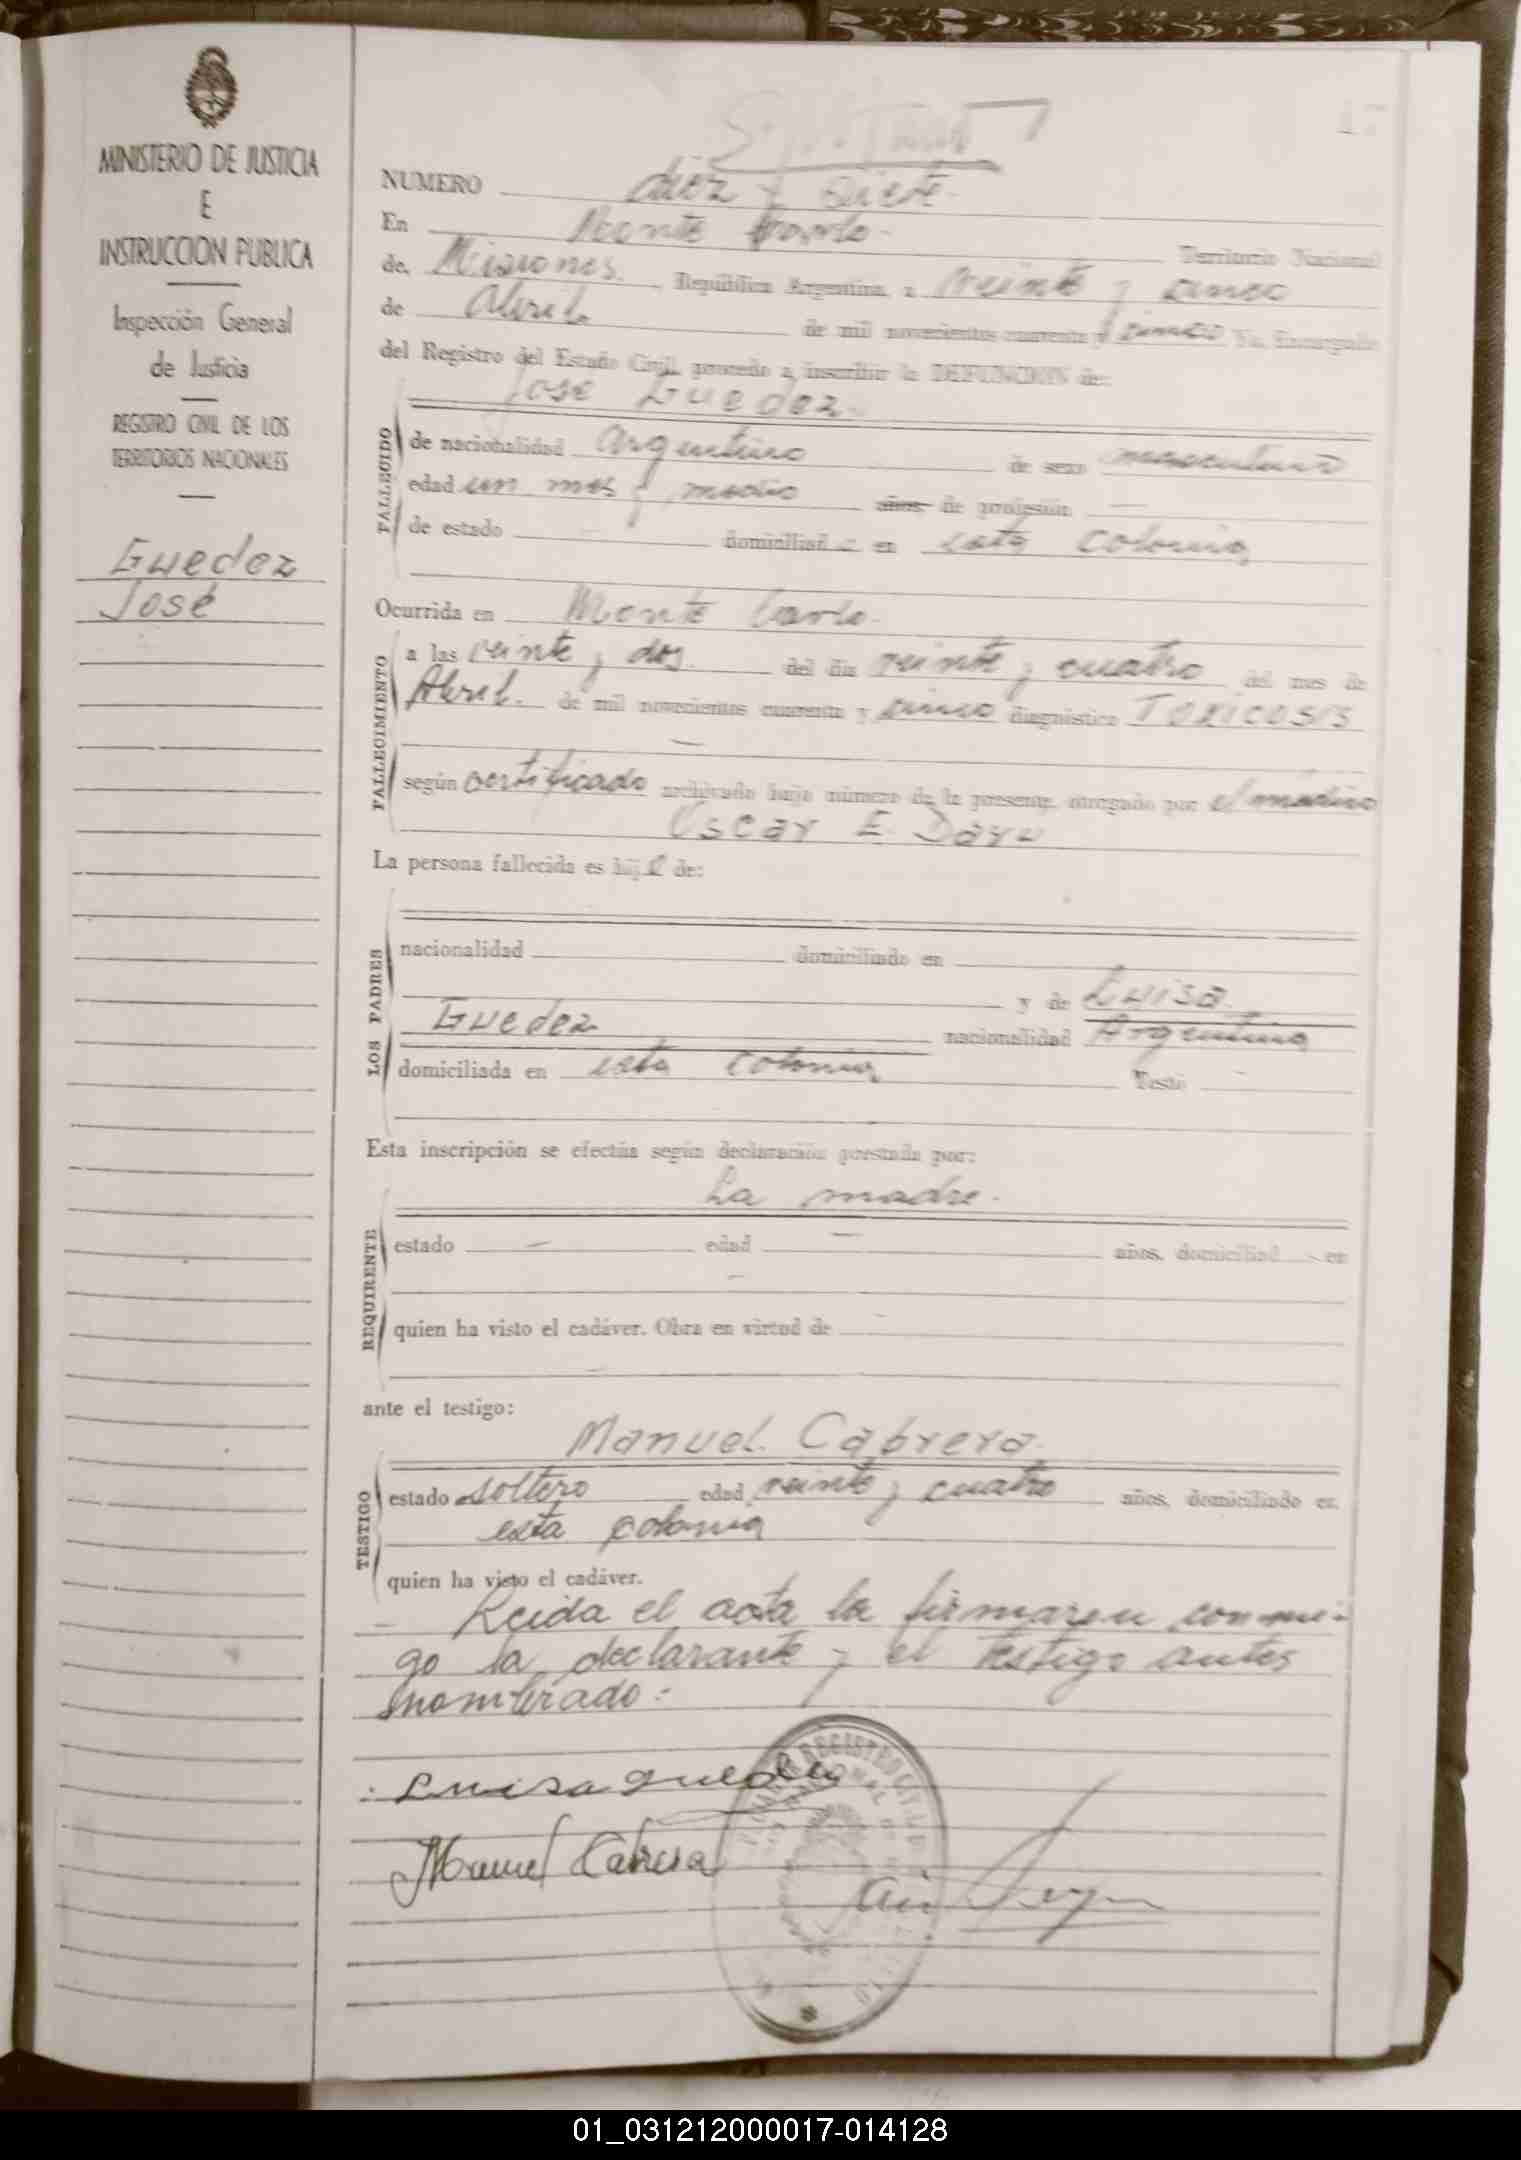 MINISTERIO DE JUSTICIA
E
INSTRUCCION PUBLICA
Inspección General
de Justicia
REGISTRO CIVIL DE LOS
TERRITORIOS NACIONALES
Guedez
José
17
NUMERO diez y siete.
En Monte Carlo. Territorio Nacional
de Misiones. , República Argentina, a veinte y cinco
de Abril. de mil novecientos cuarenta y cinco Yo, Encargado
del Registro del Estado Civil, procedo a inscribir la DEFUNCION de:
José Guedez.
FALLECIDO
de nacionalidad argentino de sexo masculino
edad un mes y medio años de profesión —
de estado — domiciliad — en esta colonia
Ocurrida en Monte Carlo.
FALLECIMIENTO
a las veinte y dos. del día veinte y cuatro del mes de
Abril. de mil novecientos cuarenta y cinco diagnóstico Toxicosis
—
según certificado archivado bajo número de la presente, otorgado por el médico
Oscar E. Dayu
La persona fallecida es hijo de:
LOS PADRES
nacionalidad domiciliado en
y de Luisa
Guedez nacionalidad Argentina
domiciliada en esta colonia Testó —
Esta inscripción se efectúa según declaración prestada por:
La madre.
REQUIRENTE
estado — edad — años, domiciliad — en
—
quien ha visto el cadáver. Obra en virtud de —
—
ante el testigo:
Manuel Cabrera.
TESTIGO
estado soltero edad veinte y cuatro años, domiciliado en
esta colonia
quien ha visto el cadáver.
— Leida el acta la firmaren conmi-
go la declarante y el testigo antes
nombrado:
Luisa guedez
Manuel Cabrera
REGISTRO CIVIL
01_031212000017-014128